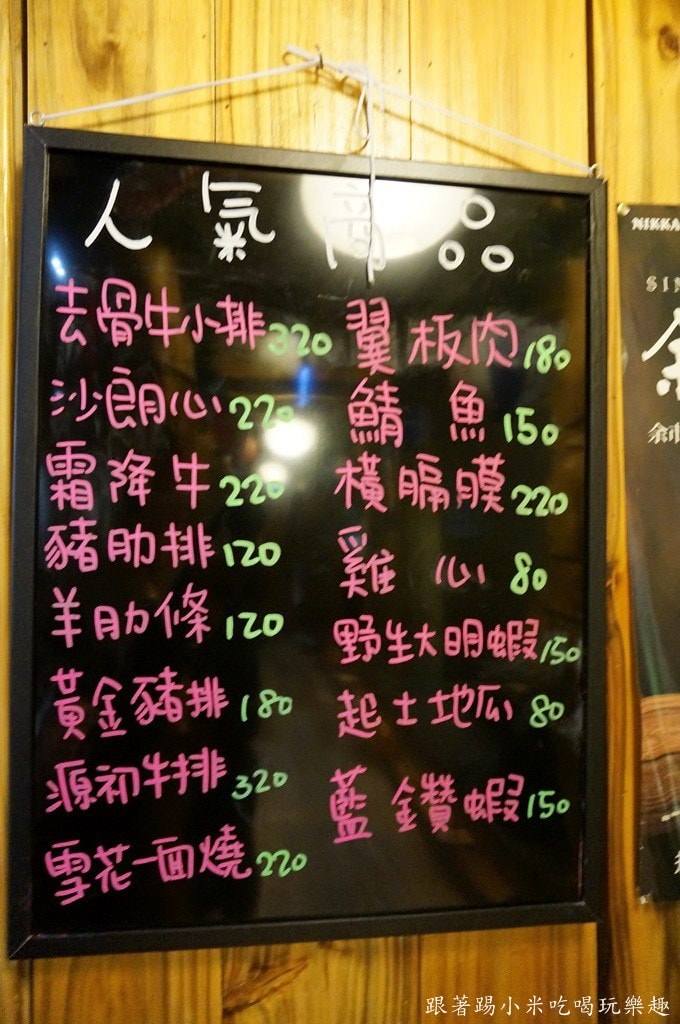 人氣商品
去骨牛小排320
沙朗心220
霜降牛220
豬肋排120
羊肋條120
黃金豬排180
源初牛排320
雪花一面燒220
翼板肉180
鯖魚150
橫膈膜220
雞心80
野生大明蝦150
起士地瓜80
藍鑽蝦150
NIKKA
SIN
余市
跟著踢小米吃喝玩樂趣